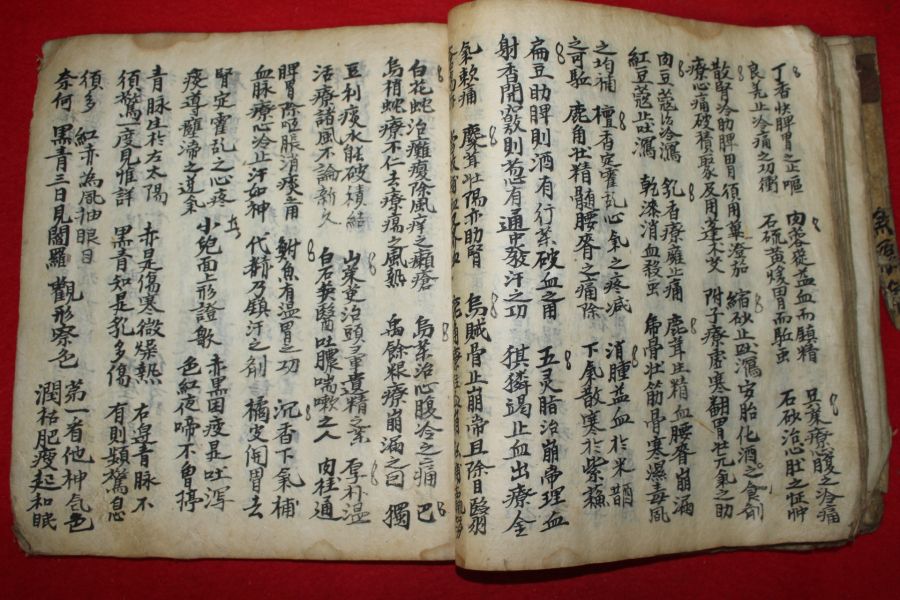 丁香快脾胃之止嘔 肉蓉蓯益血而鎮精 療心腹之冷痛
良羌止冷痛之功衝 石硫黄煖胃而駈虫 石砂治心肚之怔忡
散腎冷助脾胃須用蓽澄茄 縮砂止瀉安胎化酒之食剤
療心痛破積聚及用蓬不朮 附子療虚寒翻胃壮元氣之助
肉豆蔻治冷瀉 乳香療癰止痛 鹿茸止精血腰脊崩漏
紅豆蔻止吐瀉 乾漆消血殺虫 虎骨壮筋骨寒濕毒風
之均補 檀香定霍乱心氣之疼減 消腫益血於米醋
之可駈 鹿角壮精髓腰脊之痛除 下氣散寒於紫蘇
扁豆助脾則酒有行薬破血之用 五灵脂治崩帯理血
射香開竅則葱有通中發汗之功 猉獜竭止血出療金
氣刺痛 麋茸壮陽亦助腎 烏賊骨止崩帯且除目翳
白花蛇治癱瘓除風痒之癩瘡 烏薬治心腹冷之痛 巴
烏梢蛇療不仁去療瘍之風熱 禹餘粮療崩漏之曰 獨
豆利痰水能破積結 山茱萸治頭重遺精之薬 厚朴温
活療諸風不論新久 白石英醫吐膿喘嗽之人 肉桂通
脾胃除嘔脹消痰立用 鮒魚有温胃之功 沉香下氣補
血脉療心冷止汗如神 代赭乃鎮汗之剤 橘皮開胃去
腎定霍乱之心疼 赤黒因疲是吐瀉
痰導癰滯之逆氣 小兒面上形證歌 色紅夜啼不曽停
青脉生於左太陽 赤是傷寒微燥熱 右邉青脉不
須驚一度見惟詳 黒青知是乳多傷 有則頻驚息
須多 紅赤為風抽眼目 第一看他神气色
奈何 黒青三日見閻羅 觀形察色 潤枯肥瘦起和眠